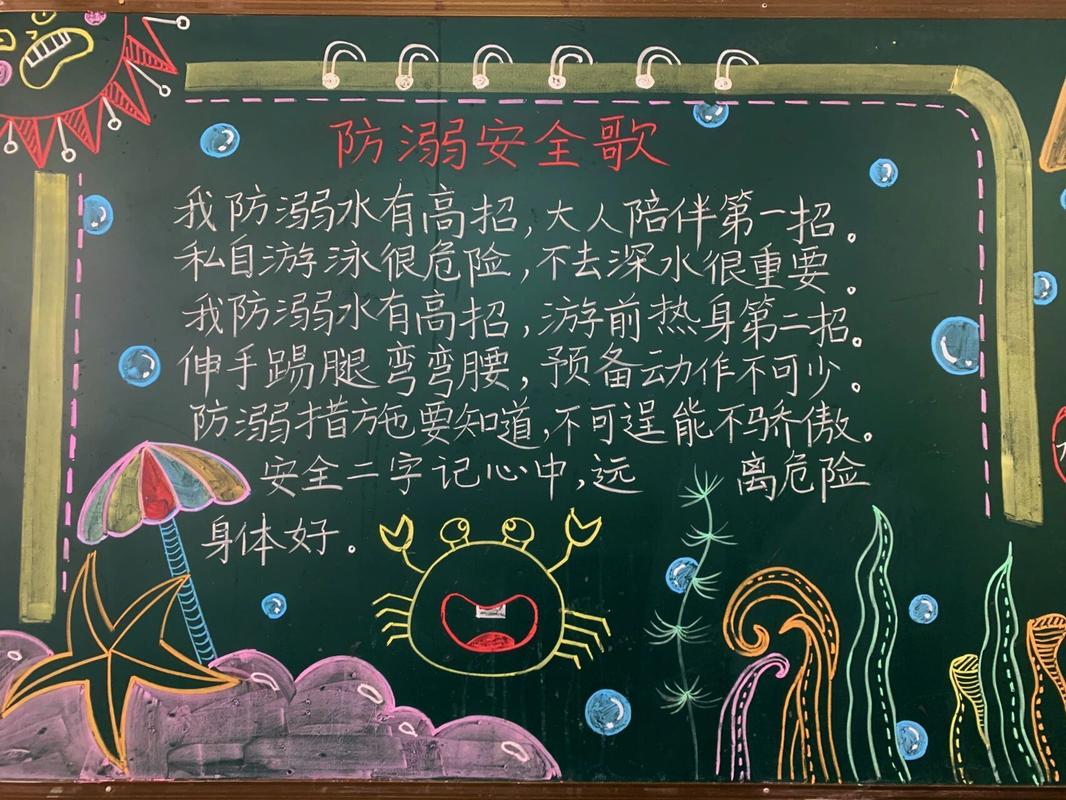 防溺安全歌
我防溺水有高招,大人陪伴第一招。
私自游泳很危险,不去深水很重要。
我防溺水有高招,游前热身第二招。
伸手踢腿弯弯腰,预备动作不可少。
防溺措施要知道,不可逞能不骄傲。
安全二字记心中,远 离危险
身体好。